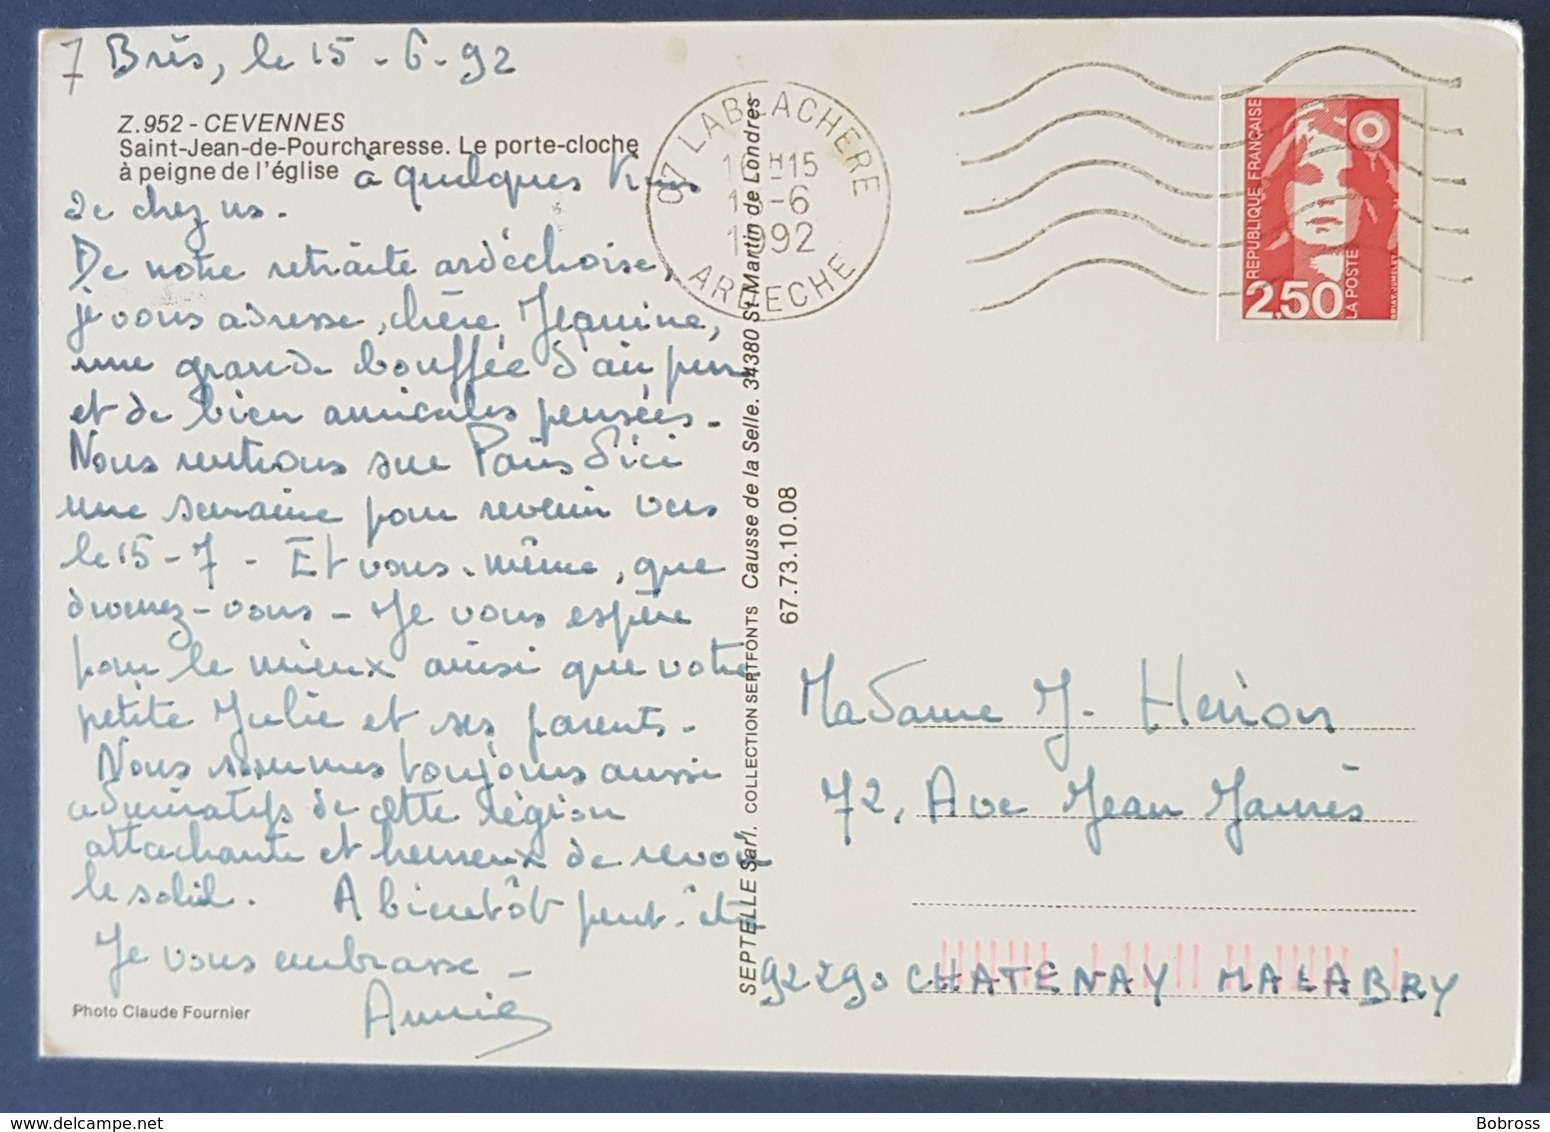 7 Brès, le 15-6-92
Z.952 - CEVENNES
Saint-Jean-de-Pourcharesse. Le porte-cloche
à peigne de l'église à quelques Kms
de chez us.
De notre retraite ardèchoise,
je vous adresse, chère Jeanine,
une grande bouffée d'air pur
et de bien amicales pensées-
Nous rentrons sur Paris d'ici
une semaine pour revenir vers
le 15-7 - Et vous-même, que
devenez-vous - Je vous espère
pour le mieux ainsi que votre
petite Julie et ses parents-
Nous sommes toujours aussi
admiratifs de cette région
attachante et heureux de revoir
le soleil. A bientôt peut-être
Je vous embrasse -
Annie
Photo Claude Fournier
07 LABLACHERE
16H15
15-6
1992
ARDECHE
SEPTELLE Sarl. COLLECTION SERTFONTS Causse de la Selle. 34380 St Martin de Londres
67.73.10.08
REPUBLIQUE FRANÇAISE
2,50
LA POSTE
BRIAT. JUMELET
Madame J. Hérion
72, Ave Jean Jaurès
92290 CHATENAY MALABRY
Bobross